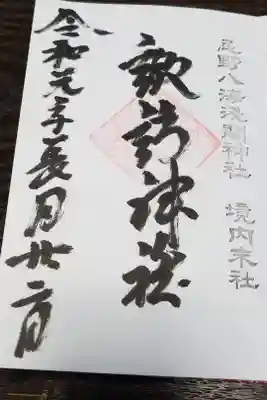 忍野八海浅間神社 境内末社
諏訪神社
令和元年長月廿二日